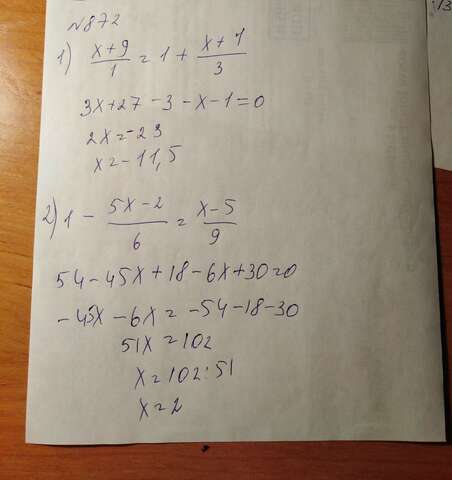 №872
1) (x+9)/1 = 1 + (x+1)/3
3x+27-3-x-1=0
2x=-23
x=-11,5
2) 1 - (5x-2)/6 = (x-5)/9
54-45x+18-6x+30=0
-45x-6x=-54-18-30
51x=102
x=102:51
x=2